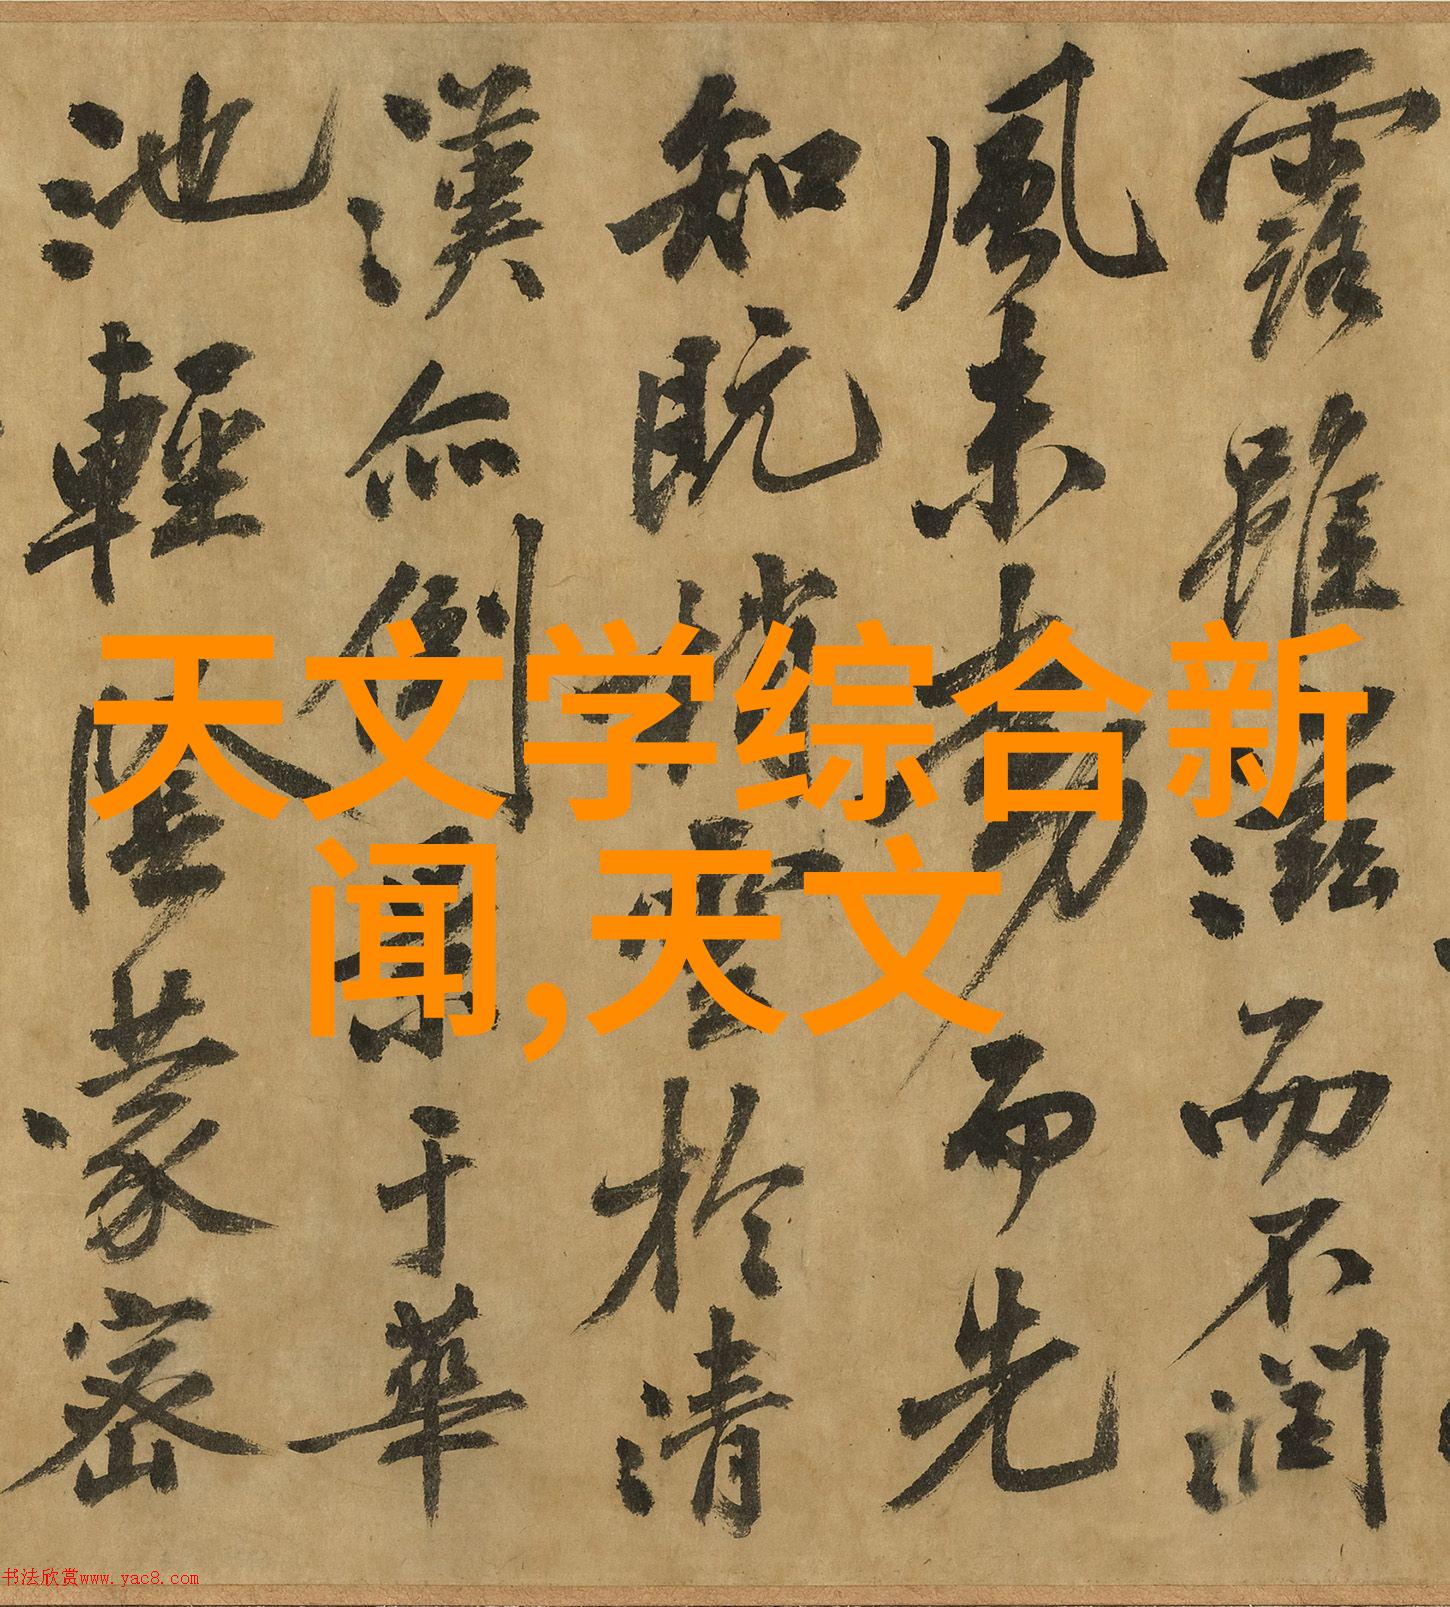 露雖滋而不潤
風未動而先
知既梢雲於清
漢亦倒景于華
池輕陰蒙密
天文学综合新
闻,天文
书法欣赏www.yac8.com